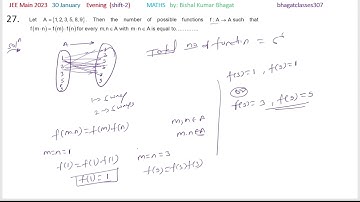 JEE Main 2023 30 January Evening (shift-2) MATHS by: Bishal Kumar Bhagat bhagatclasses307
27. Let A = {1,2,3,5,8,9}. Then the number of possible functions f : A → A such that
f(m·n) = f(m)·f(n) for every m,n ∈ A with m·n ∈ A is equal to
Solⁿ
A A
Total no of functn = 6⁶
1 → 6 ways
2 → 6 ways
f(m.n) = f(m) f(n)
m, n ∈ A
m.n ∈ A
m=n=1
f(1) = f(1) f(1)
f(1) = 1
m=n=3
f(9) = f(3) f(3)
f(3)=1, f(9)=1
f(3) = 3, f(9) = 9